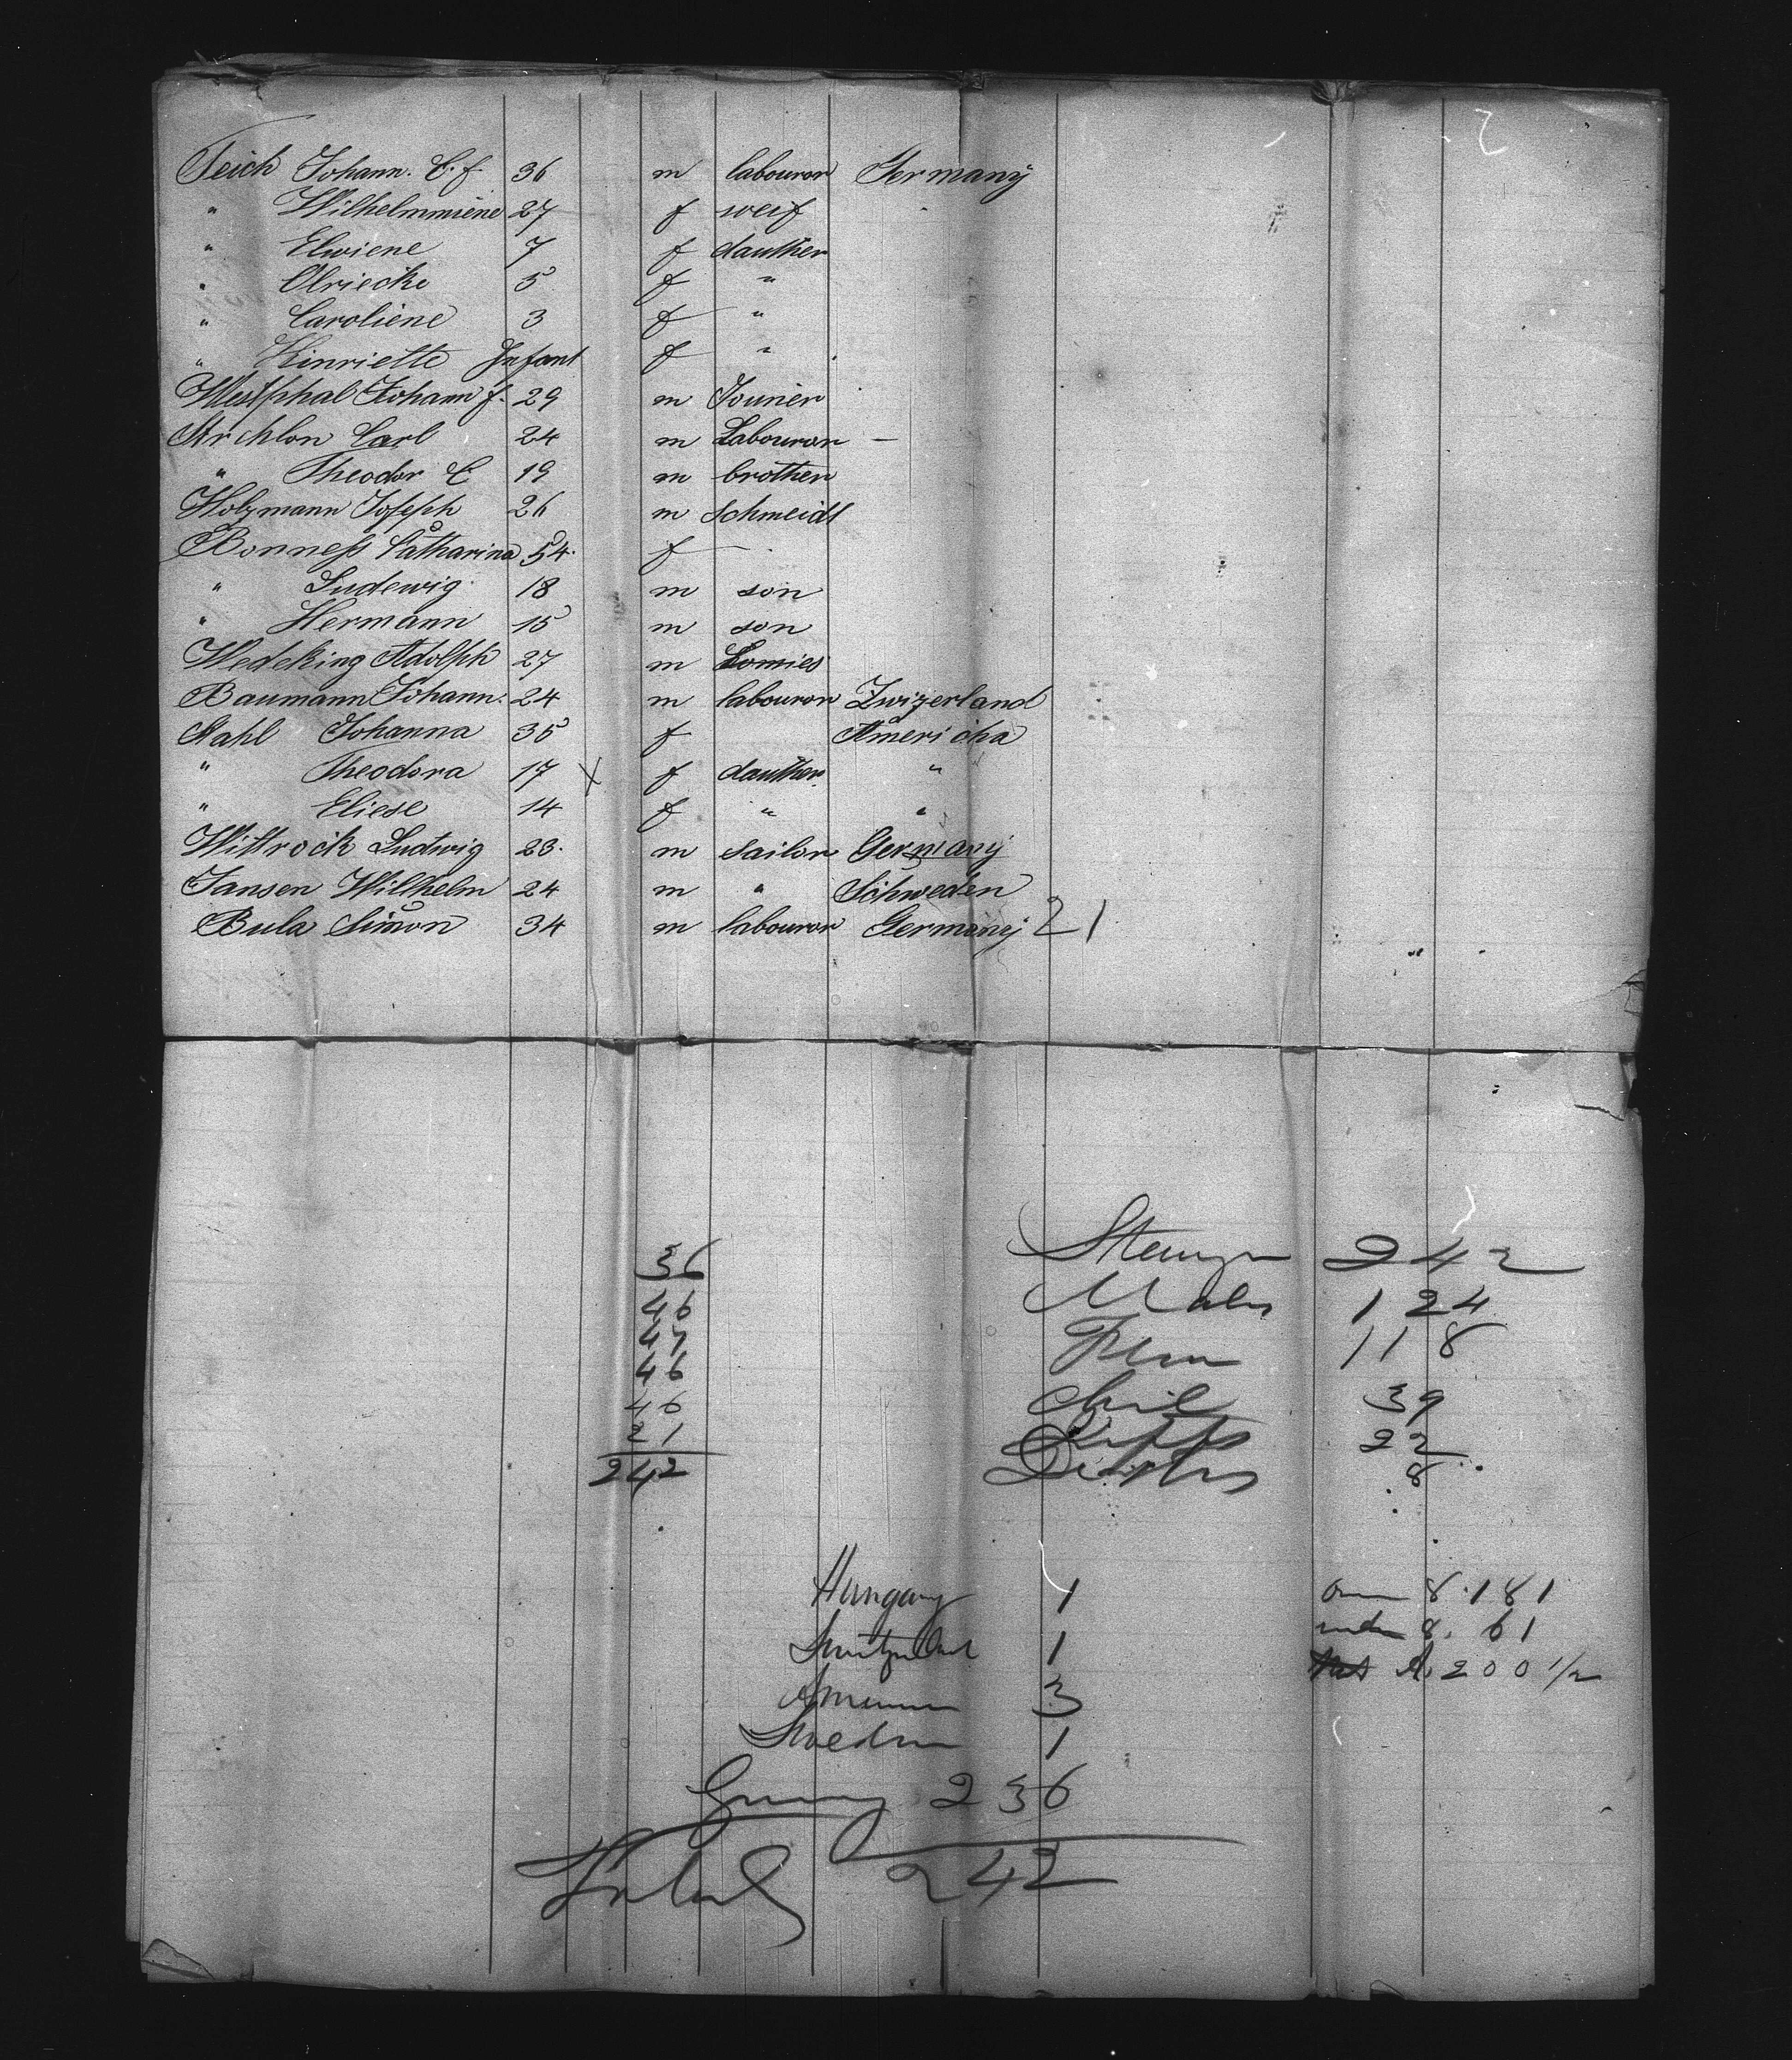 Teich Johann. C. f. 36 m labouror Germany
" Wilhelmmiene 27 f weif
" Elwiene 7 f dauther
" Olriecke 5 f "
" Caroliene 3 f "
" Hinriette Infant f "
Westphal Johann f. 29 m Jouner
Carl 24 m Labouror —
" Theodor C 19 m brother
Holzmann Joseph 26 m Schmeidt
Bonneß Catharina 54. f
" Ludewig 18 m son
" Hermann 15 m son
Wedeking Adolph 27 m
Baumann Johann. 24 m labouror Zwizerland
Stahl Johanna 35 f Americka
" Theodora 17 X f dauther "
" Eliese 14 f " "
Wittrock Ludwig 23. m sailor Germany
Jansen Wilhelm 24 m " Schweden
Bula Simon 34 m labouror Germany 21
36
46
47
46
46
21
242
242
Males 124
Fem 118
Chil 39
22
Deaths 8
Hungary 1
Switzerland 1
3
Sweden 1
Germany 236
Total 242
over 8. 181
under 8. 61
A. 200 1/2